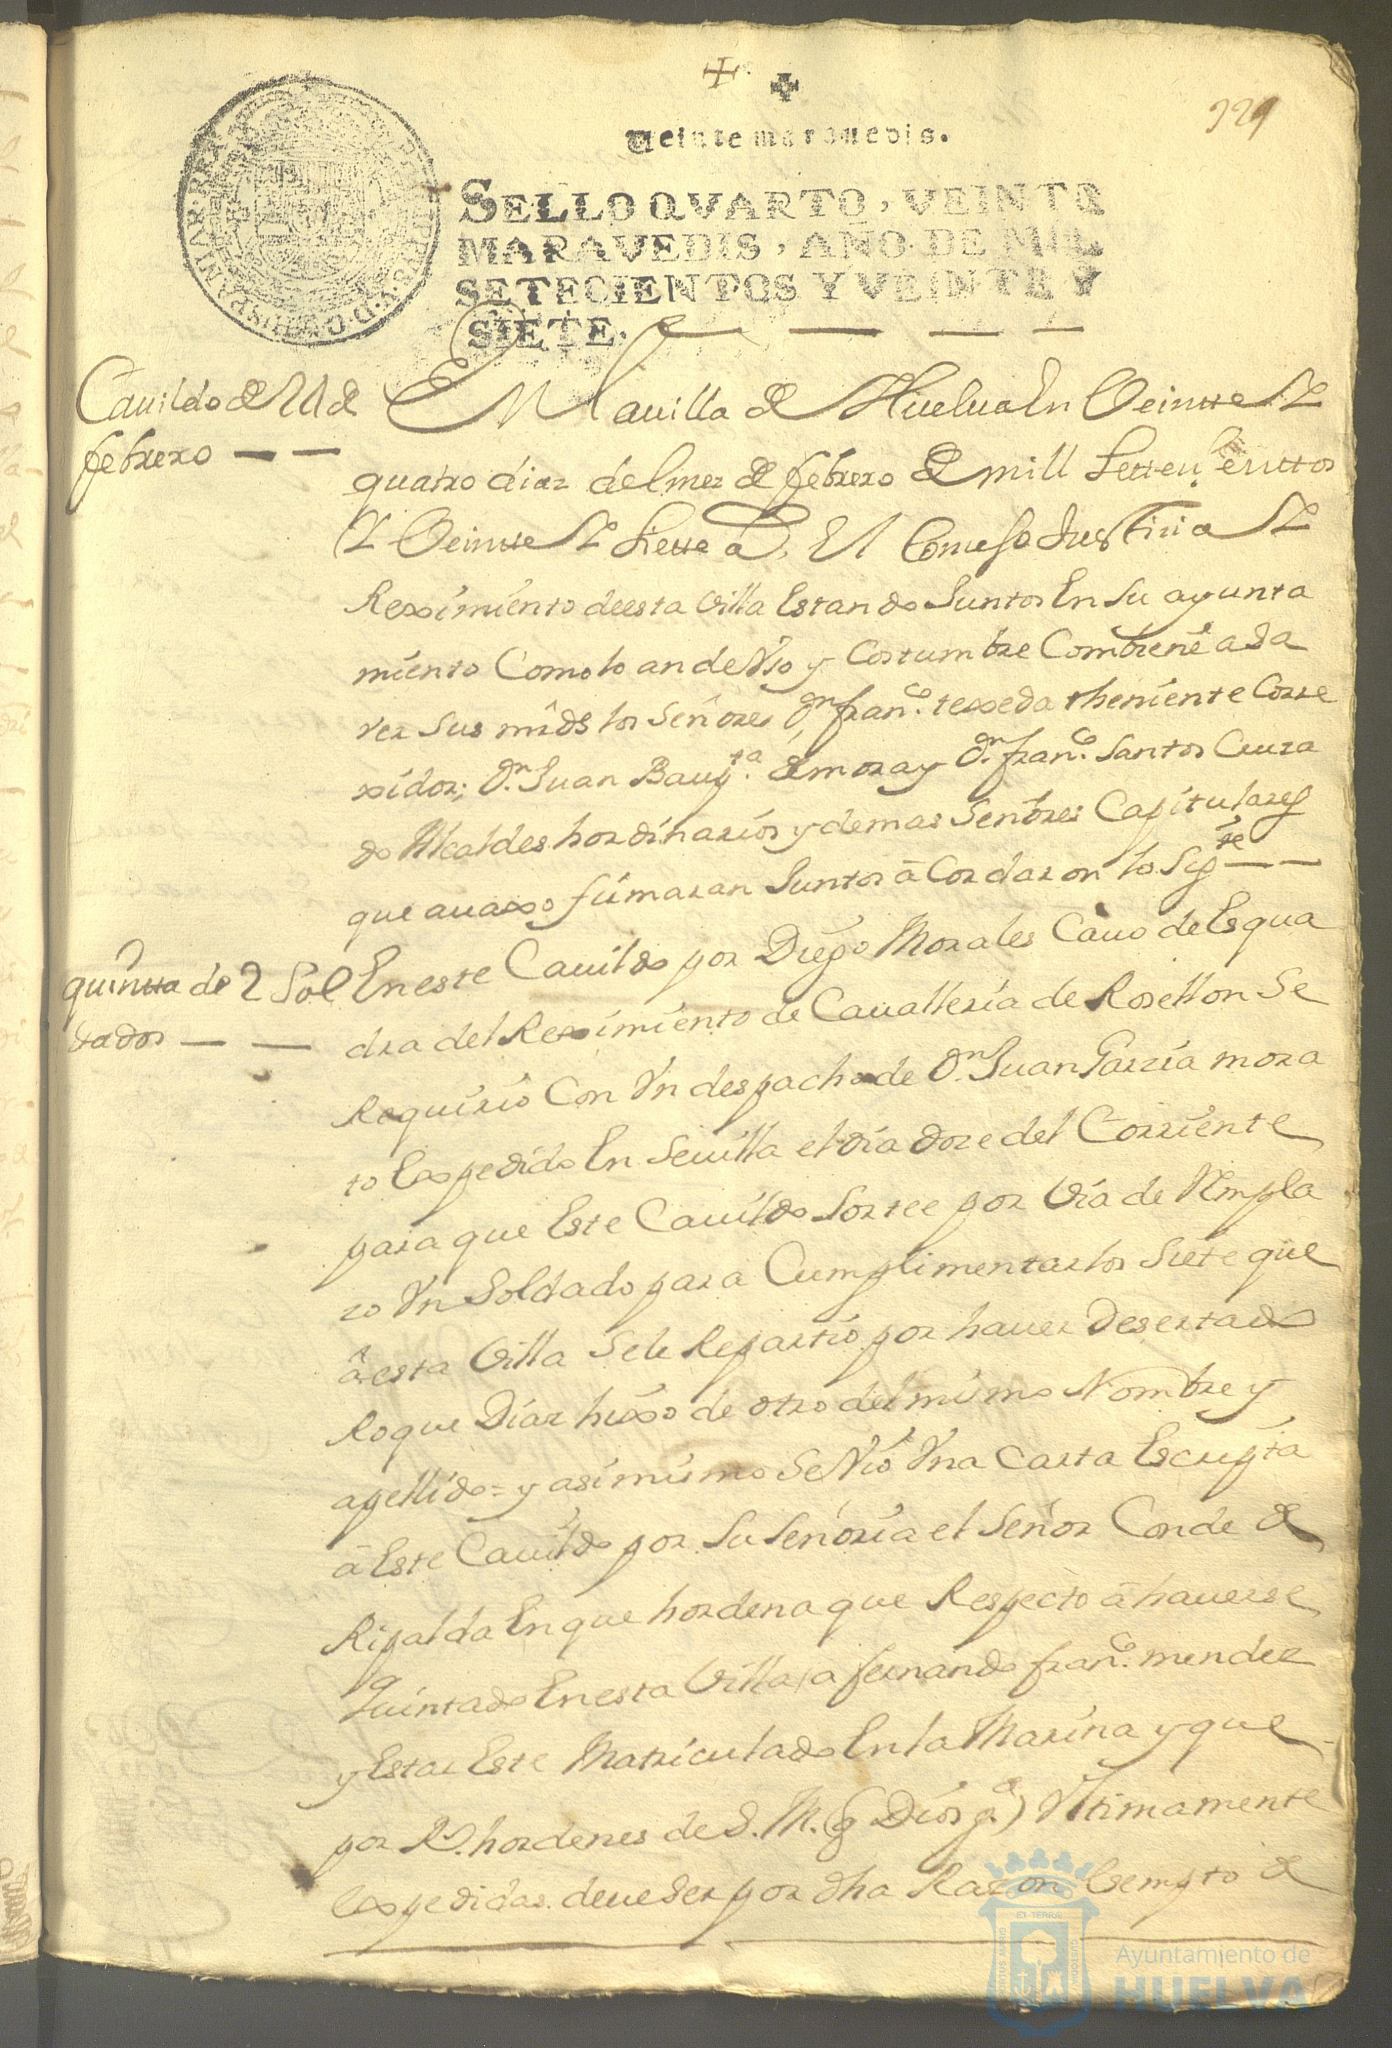 329
Veinte maravedis.
SELLO QVARTO, VEINTE
MARAVEDIS, AÑO DE MIL
SETECIENTOS Y VEINTE Y
SIETE.
Cauildo de 24 de
febrero
En la uilla de Huelua En Veintte Y
quatro dias del mes de febrero de mill Settezienttos
Y Veintte Y Siette a.s El Consejo Justizia Y
Reximiento deesta Villa Estando Juntos En Su ayunta
miento Como lo an de Vso y Costumbre Combiene a sa
ver Sus mrds los Señores Dn. franco. texeda theniente Corre
xidor; Dn. Juan Bauta. de mora y Dn. franco. Santos Cruza
do Alcaldes hordinarios y demas Señores Capitulares
que auaxo firmaran Juntos acordaron lo Sigte
quintta de 2 Sol
dados
En este Cauildo por Diego Morales Cauo de Esqua
dra del Reximiento de Cauallería de Rosellon Se
Requirió Con Vn despacho de Dn. Juan Garzia mora
to Expedido En Seuilla el día doze del Corriente
para que Este Cauildo Sortee por Vía de Rempla
zo Vn Soldado para Cumplimentar los Siete que
â esta Villa Sele Repartio por hauer Desertado
Roque Díaz hixo de otro del mismo Nombre y
apellido = y asimismo Se Vió Vna Carta Escripta
â Este Cauildo por Su Señoría el Señor Conde de
Ripalda En que hordena que Respecto â hauerse
Quintado En esta Villa a fernando franco. mendez
y Estar Este Matriculado En la Marina y que
por Rs. hordenes de S. M. (q Dios ge.) Vltimamente
Expedidas deue Ser por dha Razon Exempto de
Ayuntamiento de
HUELVA